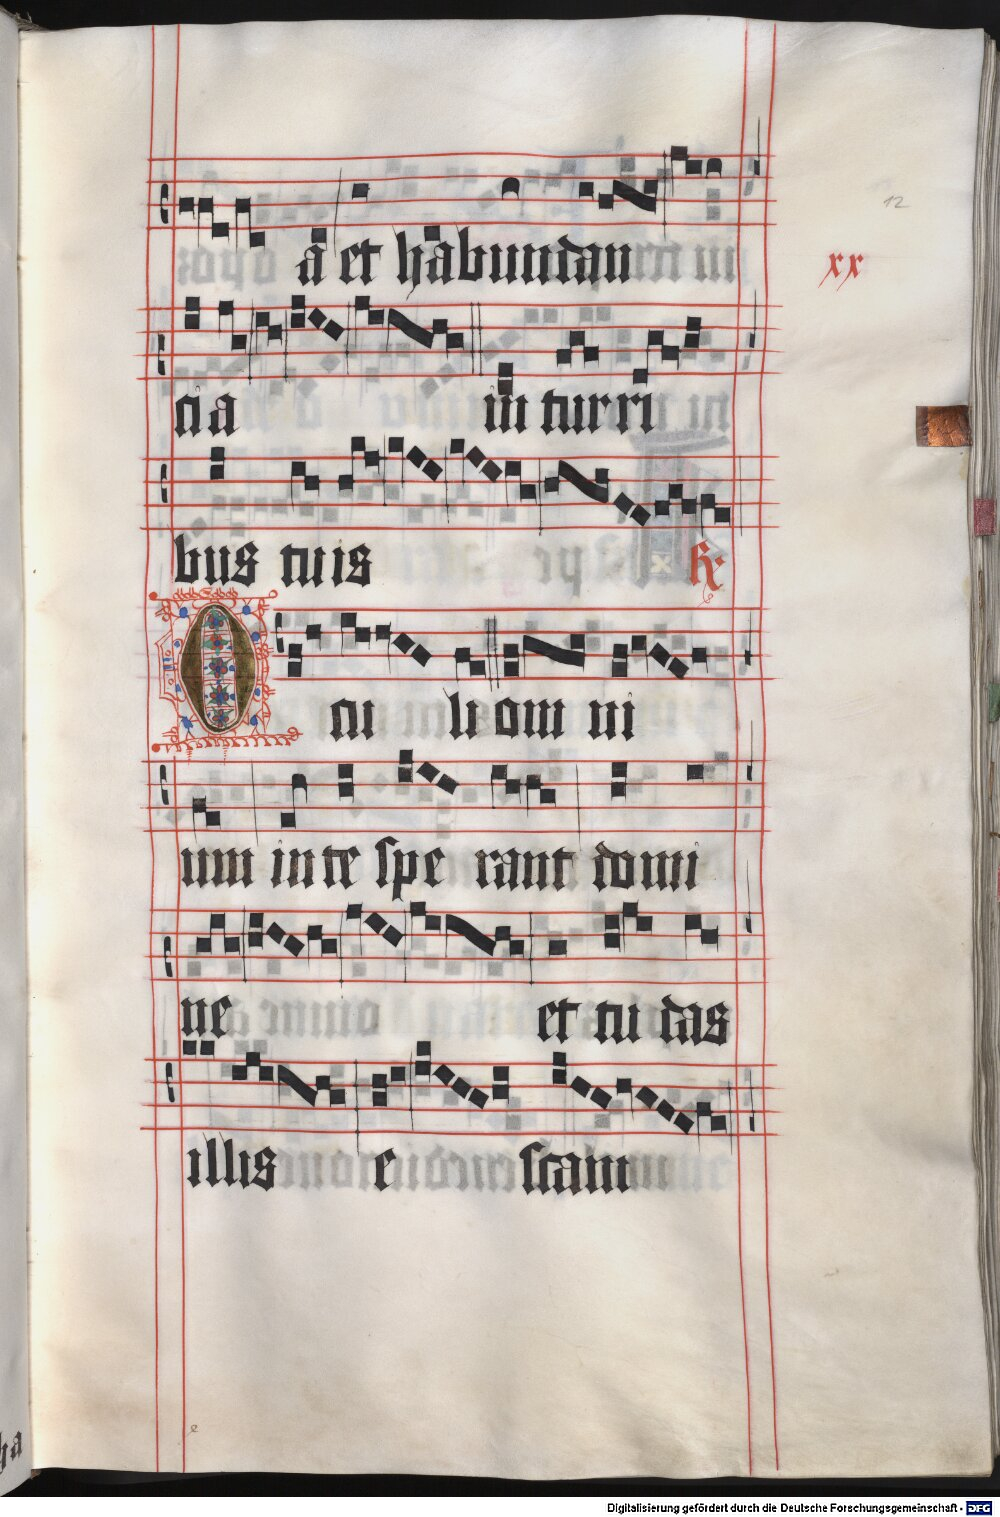 12
a et habundan
xx
cia in turri
bus tuis R.
O cu li om ni
um in te spe rant domi
ne et tu das
illis e scam
e
ha
Digitalisierung gefördert durch die Deutsche Forschungsgemeinschaft - DFG